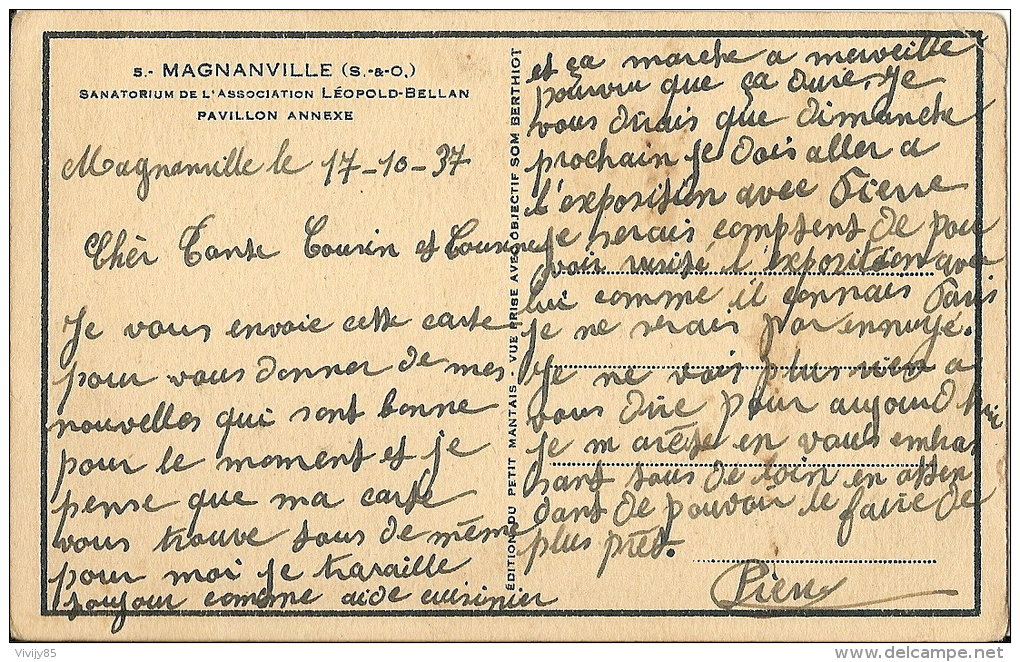 5.- MAGNANVILLE (S.-&-O.)
SANATORIUM DE L'ASSOCIATION LÉOPOLD-BELLAN
PAVILLON ANNEXE
Magnanville le 17-10-37
Chèr Tante Cousin et Cousine
Je vous envoie cette carte
pour vous donner de mes
nouvelles qui sont bonne
pour le moment et je
pense que ma carte
vous trouve tous de même
pour moi je travaille
toujour comme aide cuisinier
ÉDITION DU PETIT MANTAIS - VUE PRISE AVEC OBJECTIF SOM BERTHIOT
et ça marche a merveille
pourvu que ça dure, je
vous dirais que dimanche
prochain je dois aller a
l'exposition avec Pierre
je serais comptent de pou
voir visité l'exposition avec
lui comme il connais Paris
je ne serais pas ennuyé.
Je ne vois plus rien a
vous dire pour aujourd'hui
je m arête en vous embra
sant tous de loin en atten
dant de pouvoir le faire de
plus près.
Vivijy85
www.delcampe.net